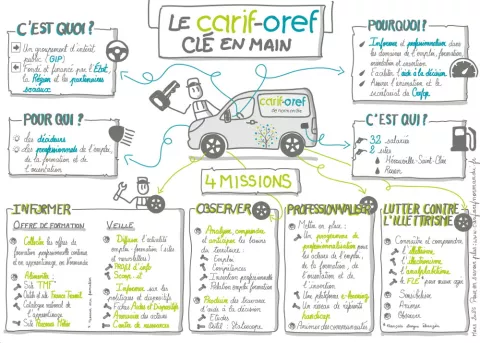 LE carif-oref
CLÉ EN MAIN
C'EST QUOI ?
Un groupement d'intérêt
public (GIP)
Fondé et financé par l'État,
la Région et les partenaires
sociaux
POURQUOI ?
Informer et professionnaliser dans
les domaines de l'emploi, formation,
orientation et insertion
Faciliter l'aide à la décision
Assurer l'animation et le
secrétariat du Crefop
carif-oref
de normandie
POUR QUI ?
des décideurs
des professionnels de l'emploi,
de la formation et de
l'orientation
C'EST QUI ?
32 salariés
2 sites
Hérouville-Saint-Clair
Rouen
4 MISSIONS
INFORMER
OFFRE DE FORMATION
Collecter les offres de
formation professionnelle continue
et en apprentissage, en Normandie
Alimenter :
Site
Outils et sites France Travail
Catalogue national de
l'apprentissage
Site Parcours Métier
VEILLE
Diffuser l'actualité
emploi-formation (sites
et newsletters)
Informer sur les
politiques et dispositifs
Fiches Aides et Dispositifs
Annuaires des acteurs
Centre de ressources
OBSERVER
Analyser, comprendre
et anticiper les besoins
du territoire
Emploi
Compétences
Insertions professionnelles
Relation emploi formation
Produire des travaux
d'aide à la décision
Etudes
Outil : Statscope
PROFESSIONNALISER
Mettre en place :
Un programme de
professionnalisation pour
les acteurs de l'emploi,
de la formation, de
l'insertion et de
l'orientation
Une plateforme e-learning
Un réseau de référents
handicap
Animer des communautés
LUTTER CONTRE
L'ILLETTRISME
Connaître et comprendre
l'illettrisme
l'illectronisme
l'analphabétisme
le FLE* pour mieux agir
Sensibiliser
Animer
Observer
*Français langue étrangère